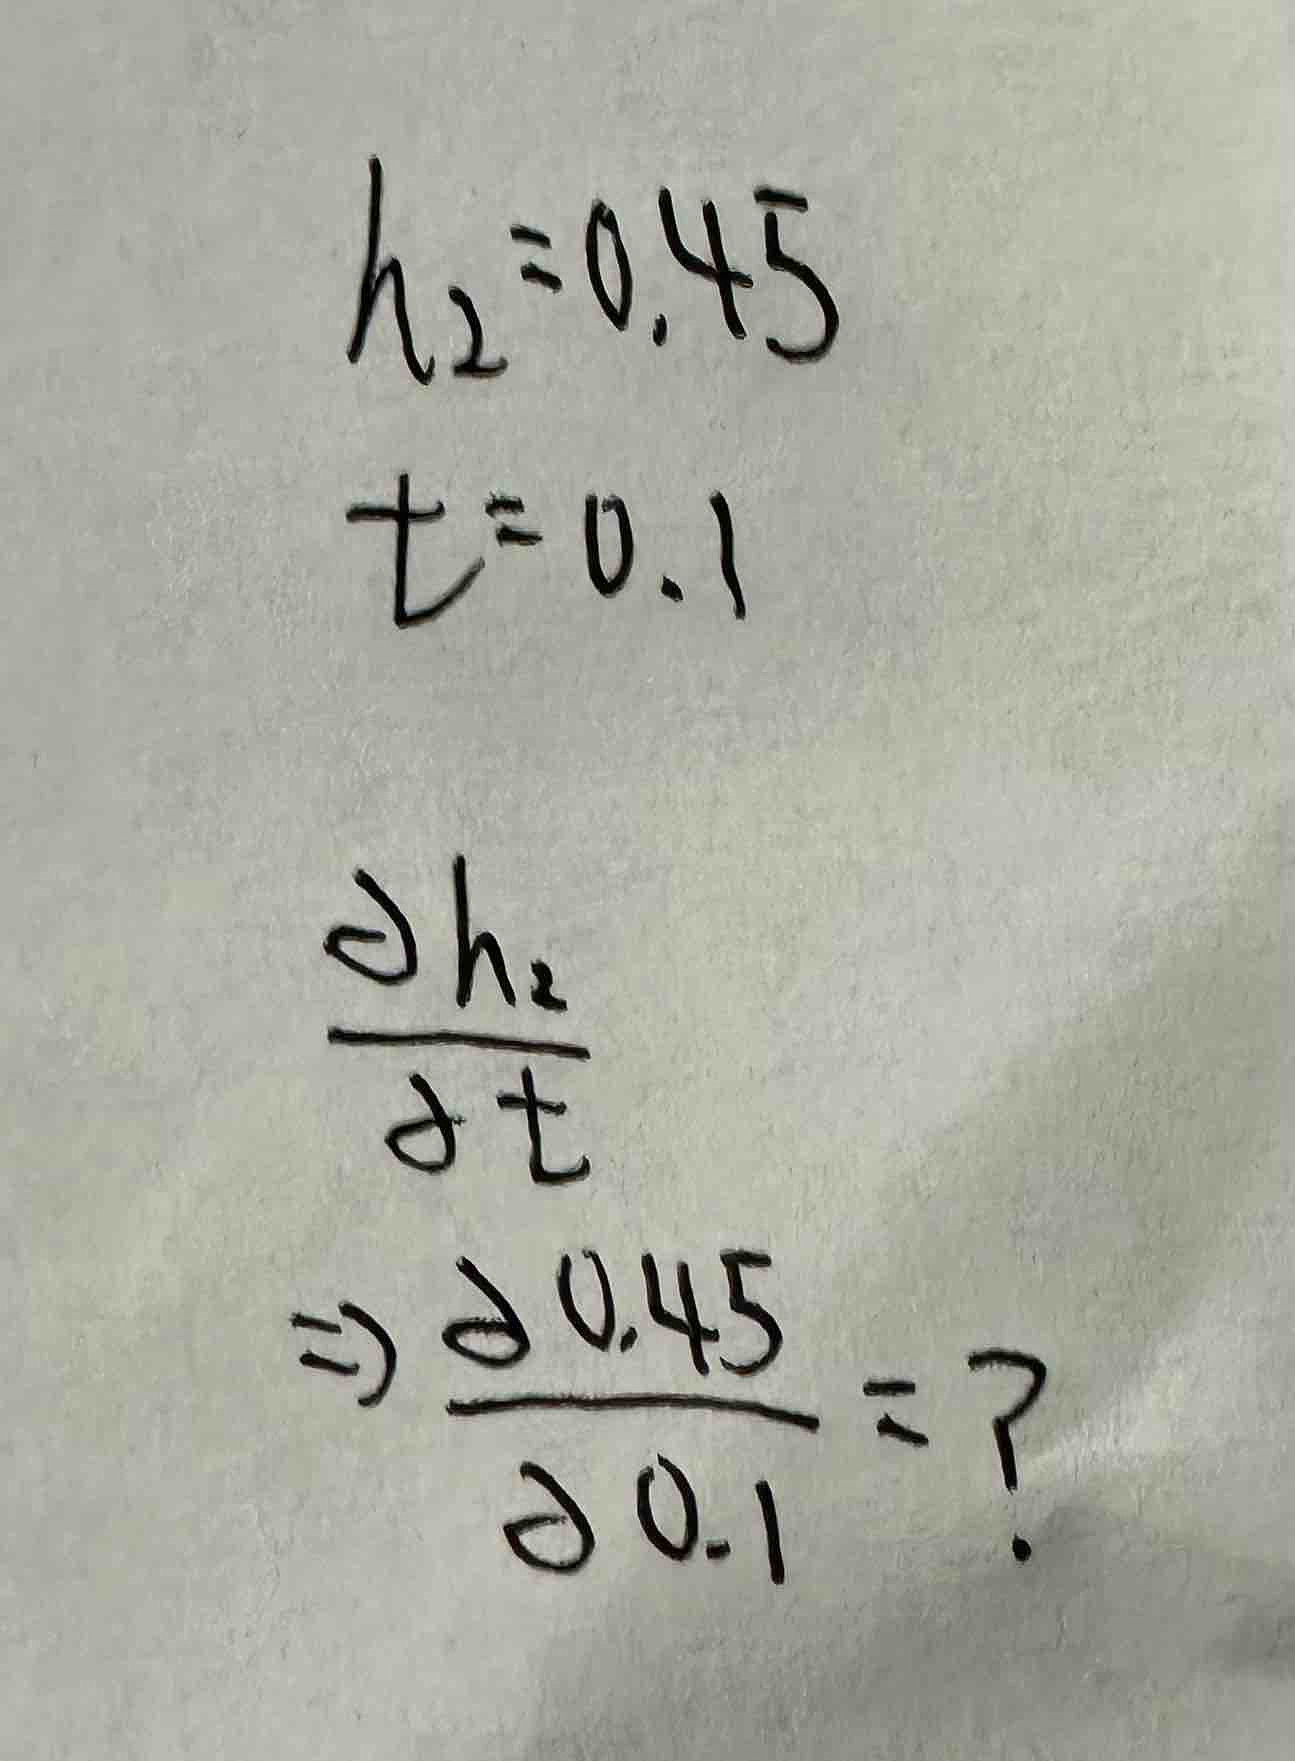 h₂=0.45
t=0.1
∂h₂
∂t
⇒ ∂0.45
∂0.1 =?